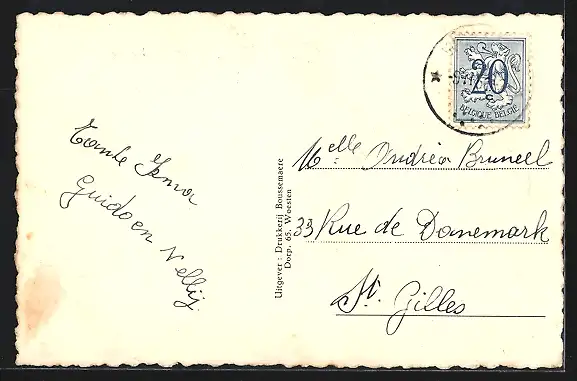 Tante Irma
Guido en Nelly
Uitgever : Drukkerij Boussemaere
Dorp, 65, Woesten
20
BELGIQUE BELGIE
Melle Andréa Bruneel
33 Rue de Danemark
St. Gilles